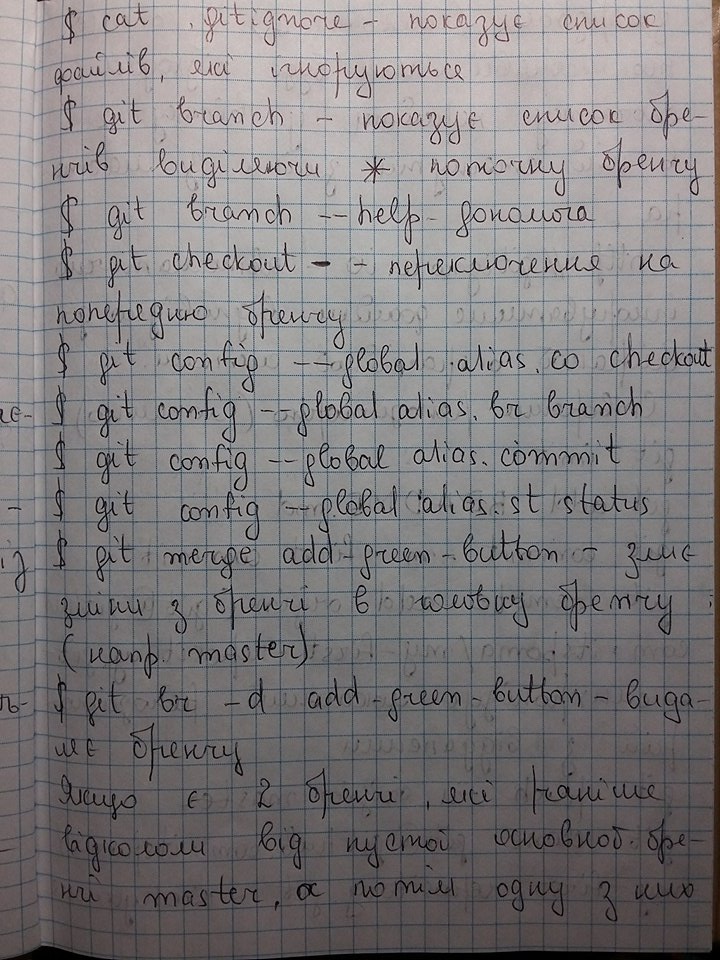 $ cat .gitignore - показує список
файлів, які ігноруються
$ git branch - показує список бре-
нчів виділяючи * поточну бренчу
$ git branch --help - допомога
$ git checkout - - переключення на
попередню бренчу
$ git config --global alias.co checkout
$ git config --global alias.br branch
$ git config --global alias.commit
$ git config --global alias.st status
$ git merge add-green-button - зліє
зміни з бренчі в головну бренчу
(напр. master)
$ git br -d add-green-button - вида-
лє бренчу
Якщо є 2 бренчі, які раніше
відкололи від пустої основної бре-
нчі master, а потім одну з них